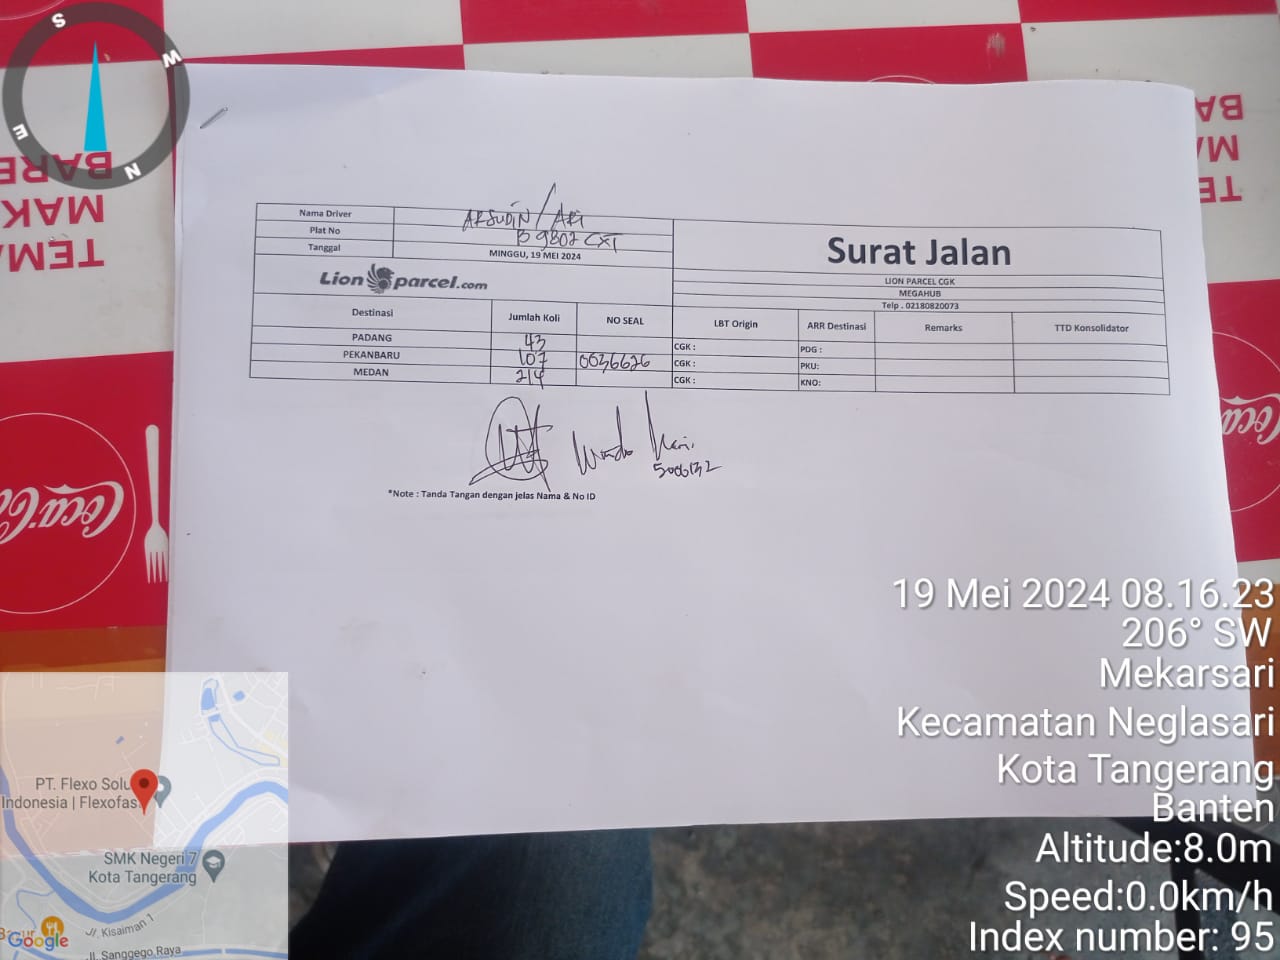 S
W
E
N
BARE
MAK
TEMA
BA
M
TE
Nama Driver ARSUDIN / ARI
Plat No B 9802 CXT
Tanggal MINGGU, 19 MEI 2024
Surat Jalan
LION PARCEL CGK
MEGAHUB
Telp . 02180820073
Lion parcel.com
Destinasi Jumlah Koli NO SEAL LBT Origin ARR Destinasi Remarks TTD Konsolidator
PADANG 43 CGK : PDG :
PEKANBARU 107 0036626 CGK : PKU:
MEDAN 214 CGK : KNO:
*Note : Tanda Tangan dengan jelas Nama & No ID
Coca-Cola
19 Mei 2024 08.16.23
206° SW
Mekarsari
Kecamatan Neglasari
Kota Tangerang
Banten
Altitude:8.0m
Speed:0.0km/h
Index number: 95
PT. Flexo Solu
Indonesia | Flexofas
SMK Negeri 7
Kota Tangerang
Jl. Kisaiman 1
Jl. Sanggego Raya
Google